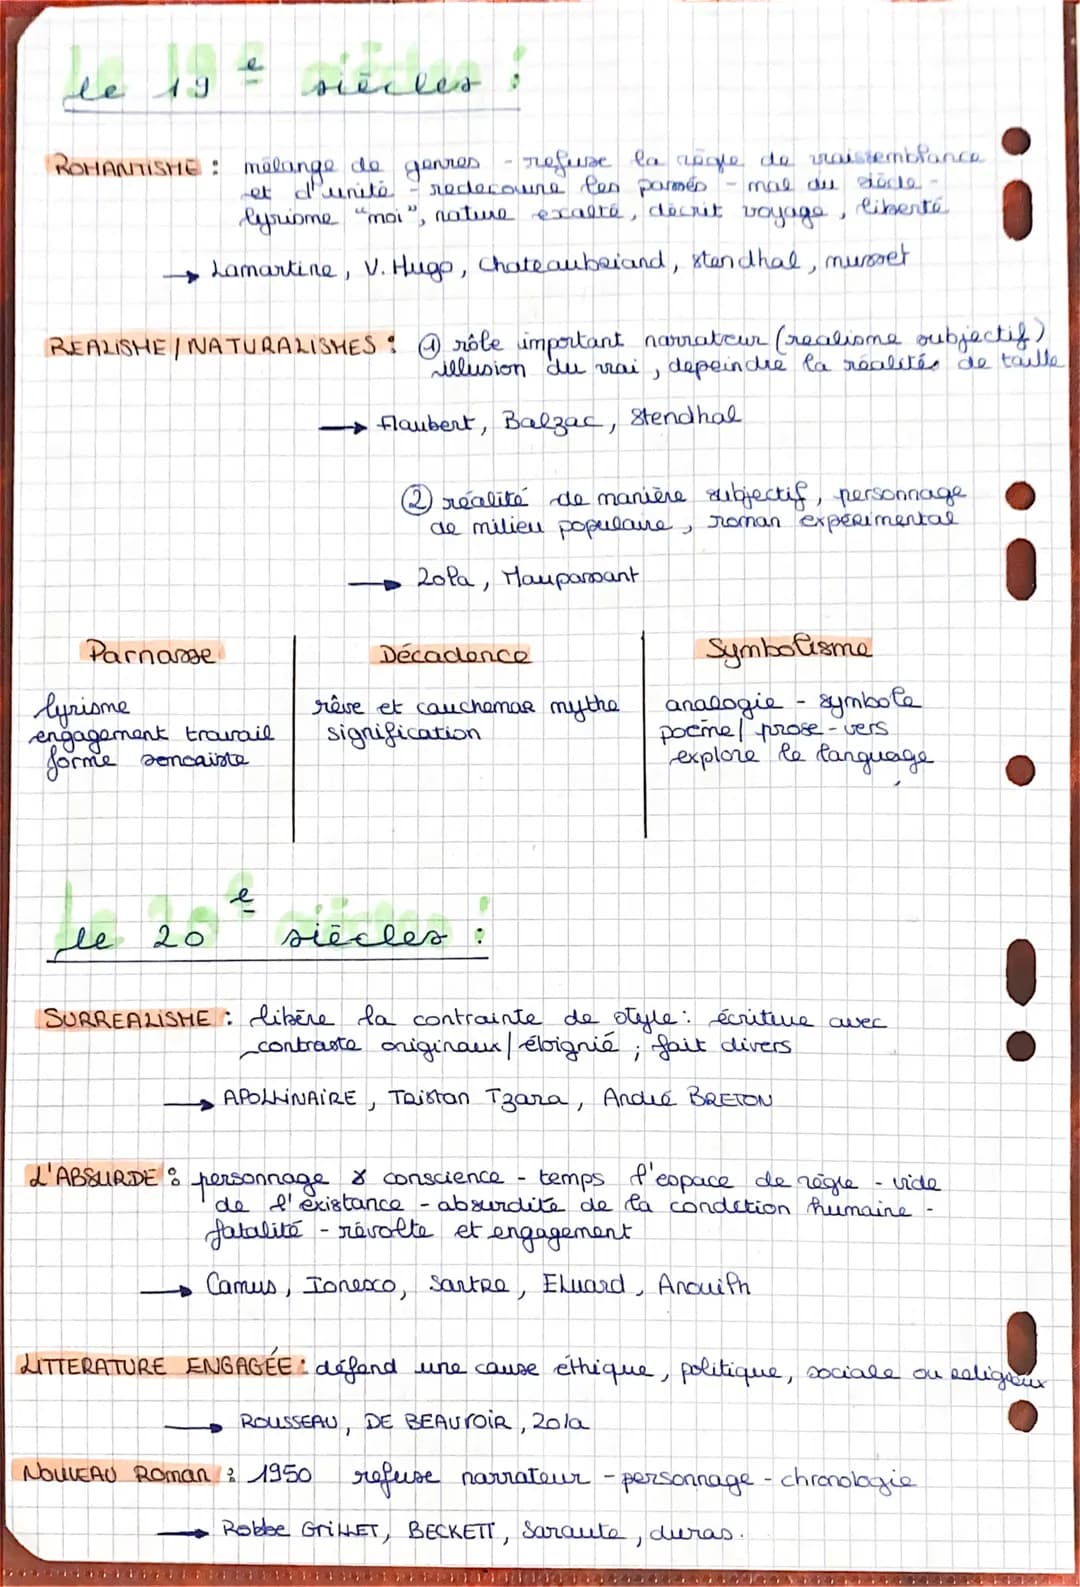 le 19e siècles :
ROMANTISME : mélange de genres - refuse la règle de vraissemblance
et d'unité - redecouvre les passés - mal du siècle -
lyrisme "moi", nature exalté, décrit voyage, liberté
→ Lamartine, V. Hugo, Chateaubriand, Stendhal, musset
REALISME / NATURALISMES : ① rôle important narrateur (realisme subjectif)
illusion du vrai, depeindre la réalités de taille
→ flaubert, Balzac, Stendhal
② réalité de manière subjectif, personnage
de milieu populaire, roman expérimental
→ Zola, Maupassant
Parnasse
lyrisme
engagement travail
forme
Décadence
rêve et cauchemar mythe
signification
Symbolisme
analogie - symbole
poème / prose - vers
explore le language
le 20e siècles :
SURREALISME : libère la contrainte de style : écriture avec
contraste originaux / éloignié ; fait divers
→ APOLLINAIRE, Tristan Tzara, André BRETON
L'ABSURDE : personnage & conscience - temps l'espace de règle - vide
de l'existance - absurdité de la condition humaine -
fatalité - révolte et engagement
→ Camus, Ionesco, Sartre, Eluard, Anouilh
LITTERATURE ENGAGÉE : défend une cause éthique, politique, sociale ou religieux
→ ROUSSEAU, DE BEAUVOIR, Zola
NOUVEAU Roman : 1950 refuse narrateur - personnage - chronologie
→ Robbe GRILLET, BECKETT, Saraute, duras.